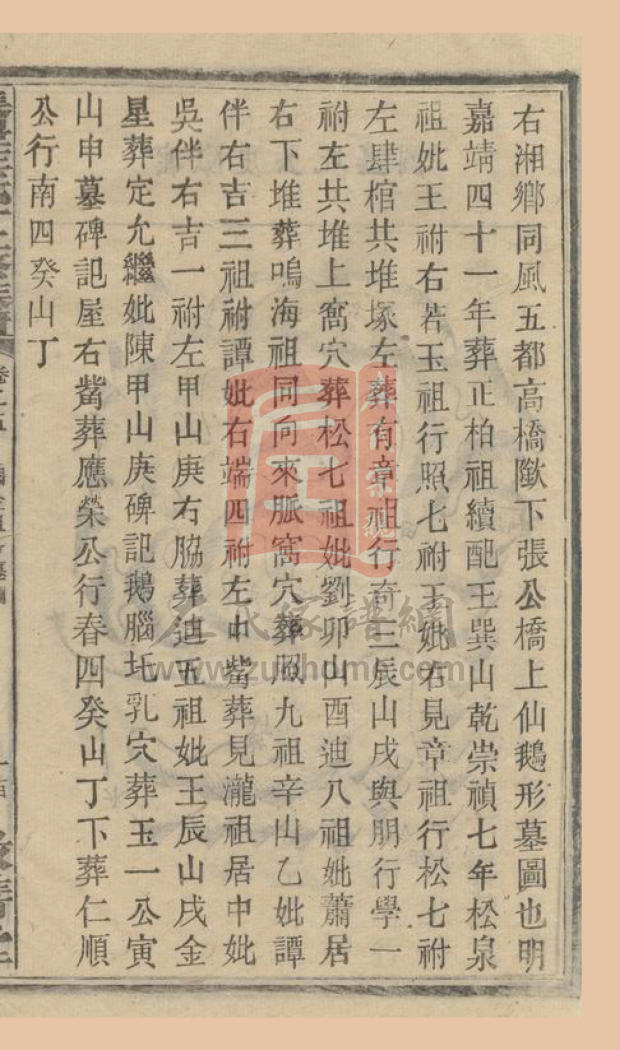 右湘鄉同風五都高橋隞下張公橋上仙鵝形墓圖也明
嘉靖四十一年葬正柏祖續配王巽山乾崇禎七年松泉
祖妣王祔右若玉祖行照七祔王妣右見章祖行松七祔
左肆棺共堆塚左葬有章祖行奇三辰山戌與朋行學一
祔左共堆上窩穴葬松七祖妣劉卯山酉迪八祖妣蕭居
右下堆葬鳴海祖同向來脈窩穴葬照九祖辛山乙妣譚
伴右吉三祖祔譚妣右端四祔左中觜葬見瀧祖居中妣
吳伴右吉一祔左甲山庚右脇葬迪五祖妣王辰山戌金
星葬定允繼妣陳甲山庚碑記鵝腦圫乳穴葬玉一公寅
山申墓碑記屋右觜葬應榮公行春四癸山丁下葬仁順
公行南四癸山丁
卷之五
左氏家譜網
www.zuojiahome.com